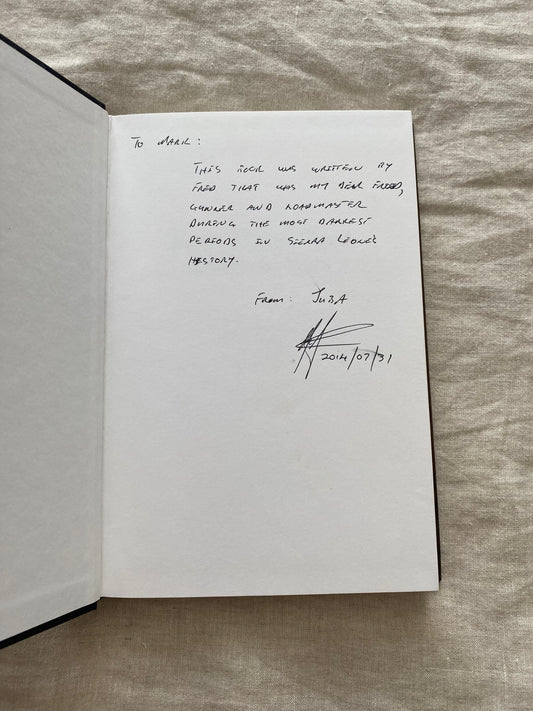 To MARK:
THIS BOOK WAS WRITTEN BY
FRED THAT WAS MY DEAR FRIEND,
GUNNER AND LOADMASTER
DURING THE MOST DARKEST
PERIODS IN SIERRA LEONE'S
HISTORY.
From: JUBA
2014/07/31